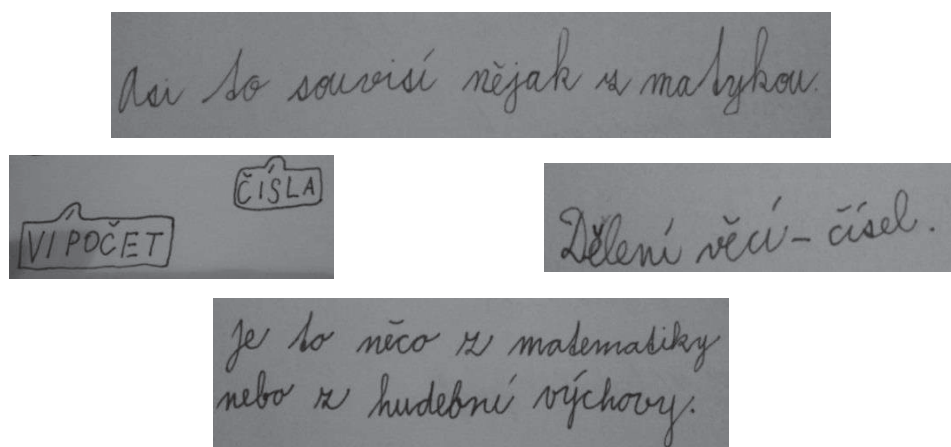 Asi to souvisí nějak s matykou.
ČÍSLA
VÍPOČET
Dělení věcí – čísel.
Je to něco z matematiky
nebo z hudební výchovy.